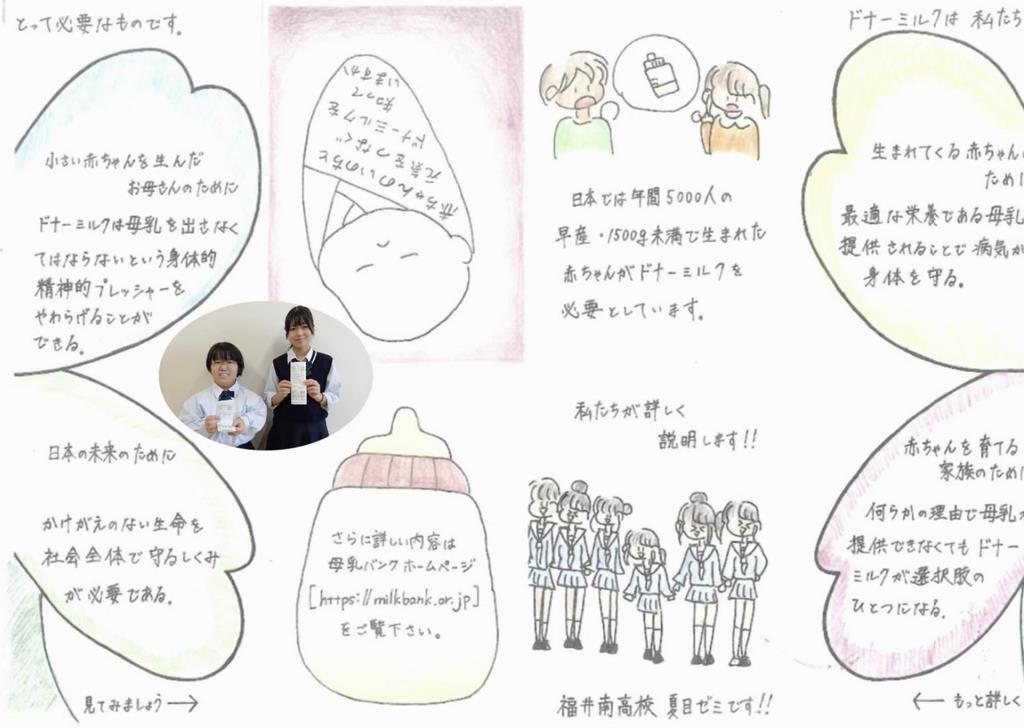 とって必要なものです。
小さい赤ちゃんを生んだ
お母さんのために
ドナーミルクは母乳を出さなく
てはならないという身体的
精神的プレッシャーを
やわらげることが
できる。
日本の未来のために
かけがえのない生命を
社会全体で守るしくみ
が必要である。
見てみましょう→
赤ちゃんのいのちと
元気をつなぐ
ドナーミルクを
知って
いますか
さらに詳しい内容は
母乳バンクホームページ
[https://milkbank.or.jp]
をご覧下さい。
日本では年間5000人の
早産・1500g未満で生まれた
赤ちゃんがドナーミルクを
必要としています。
私たちが詳しく
説明します!!
福井南高校 夏目ゼミです!!
ドナーミルクは 私たち
生まれてくる赤ちゃん
ために
最適な栄養である母乳
提供されることで病気か
身体を守る。
赤ちゃんを育てる
家族のために
何らかの理由で母乳が
提供できなくてもドナー
ミルクが選択肢の
ひとつになる。
← もっと詳しく